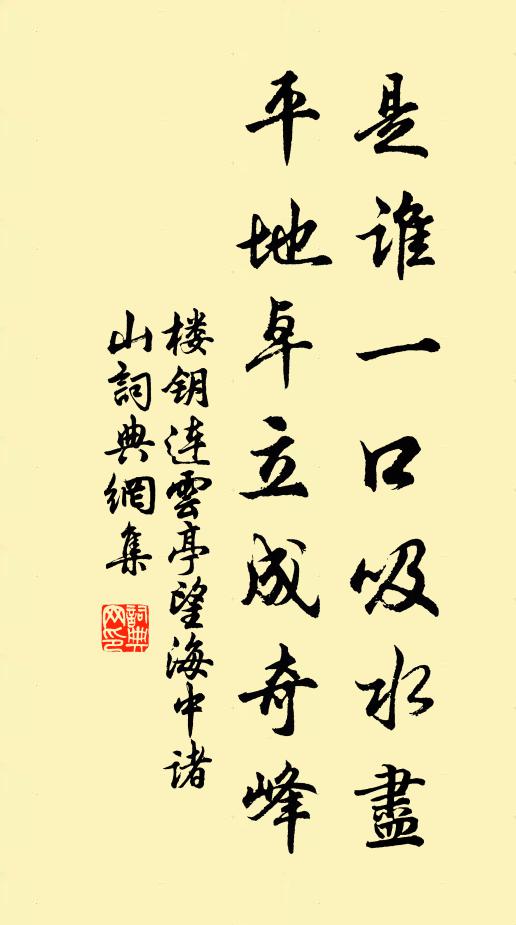 是誰一口吸水盡
平地卓立成奇峰
楼钥连雲亭望海中诸
山詞典網集
詞典
网印